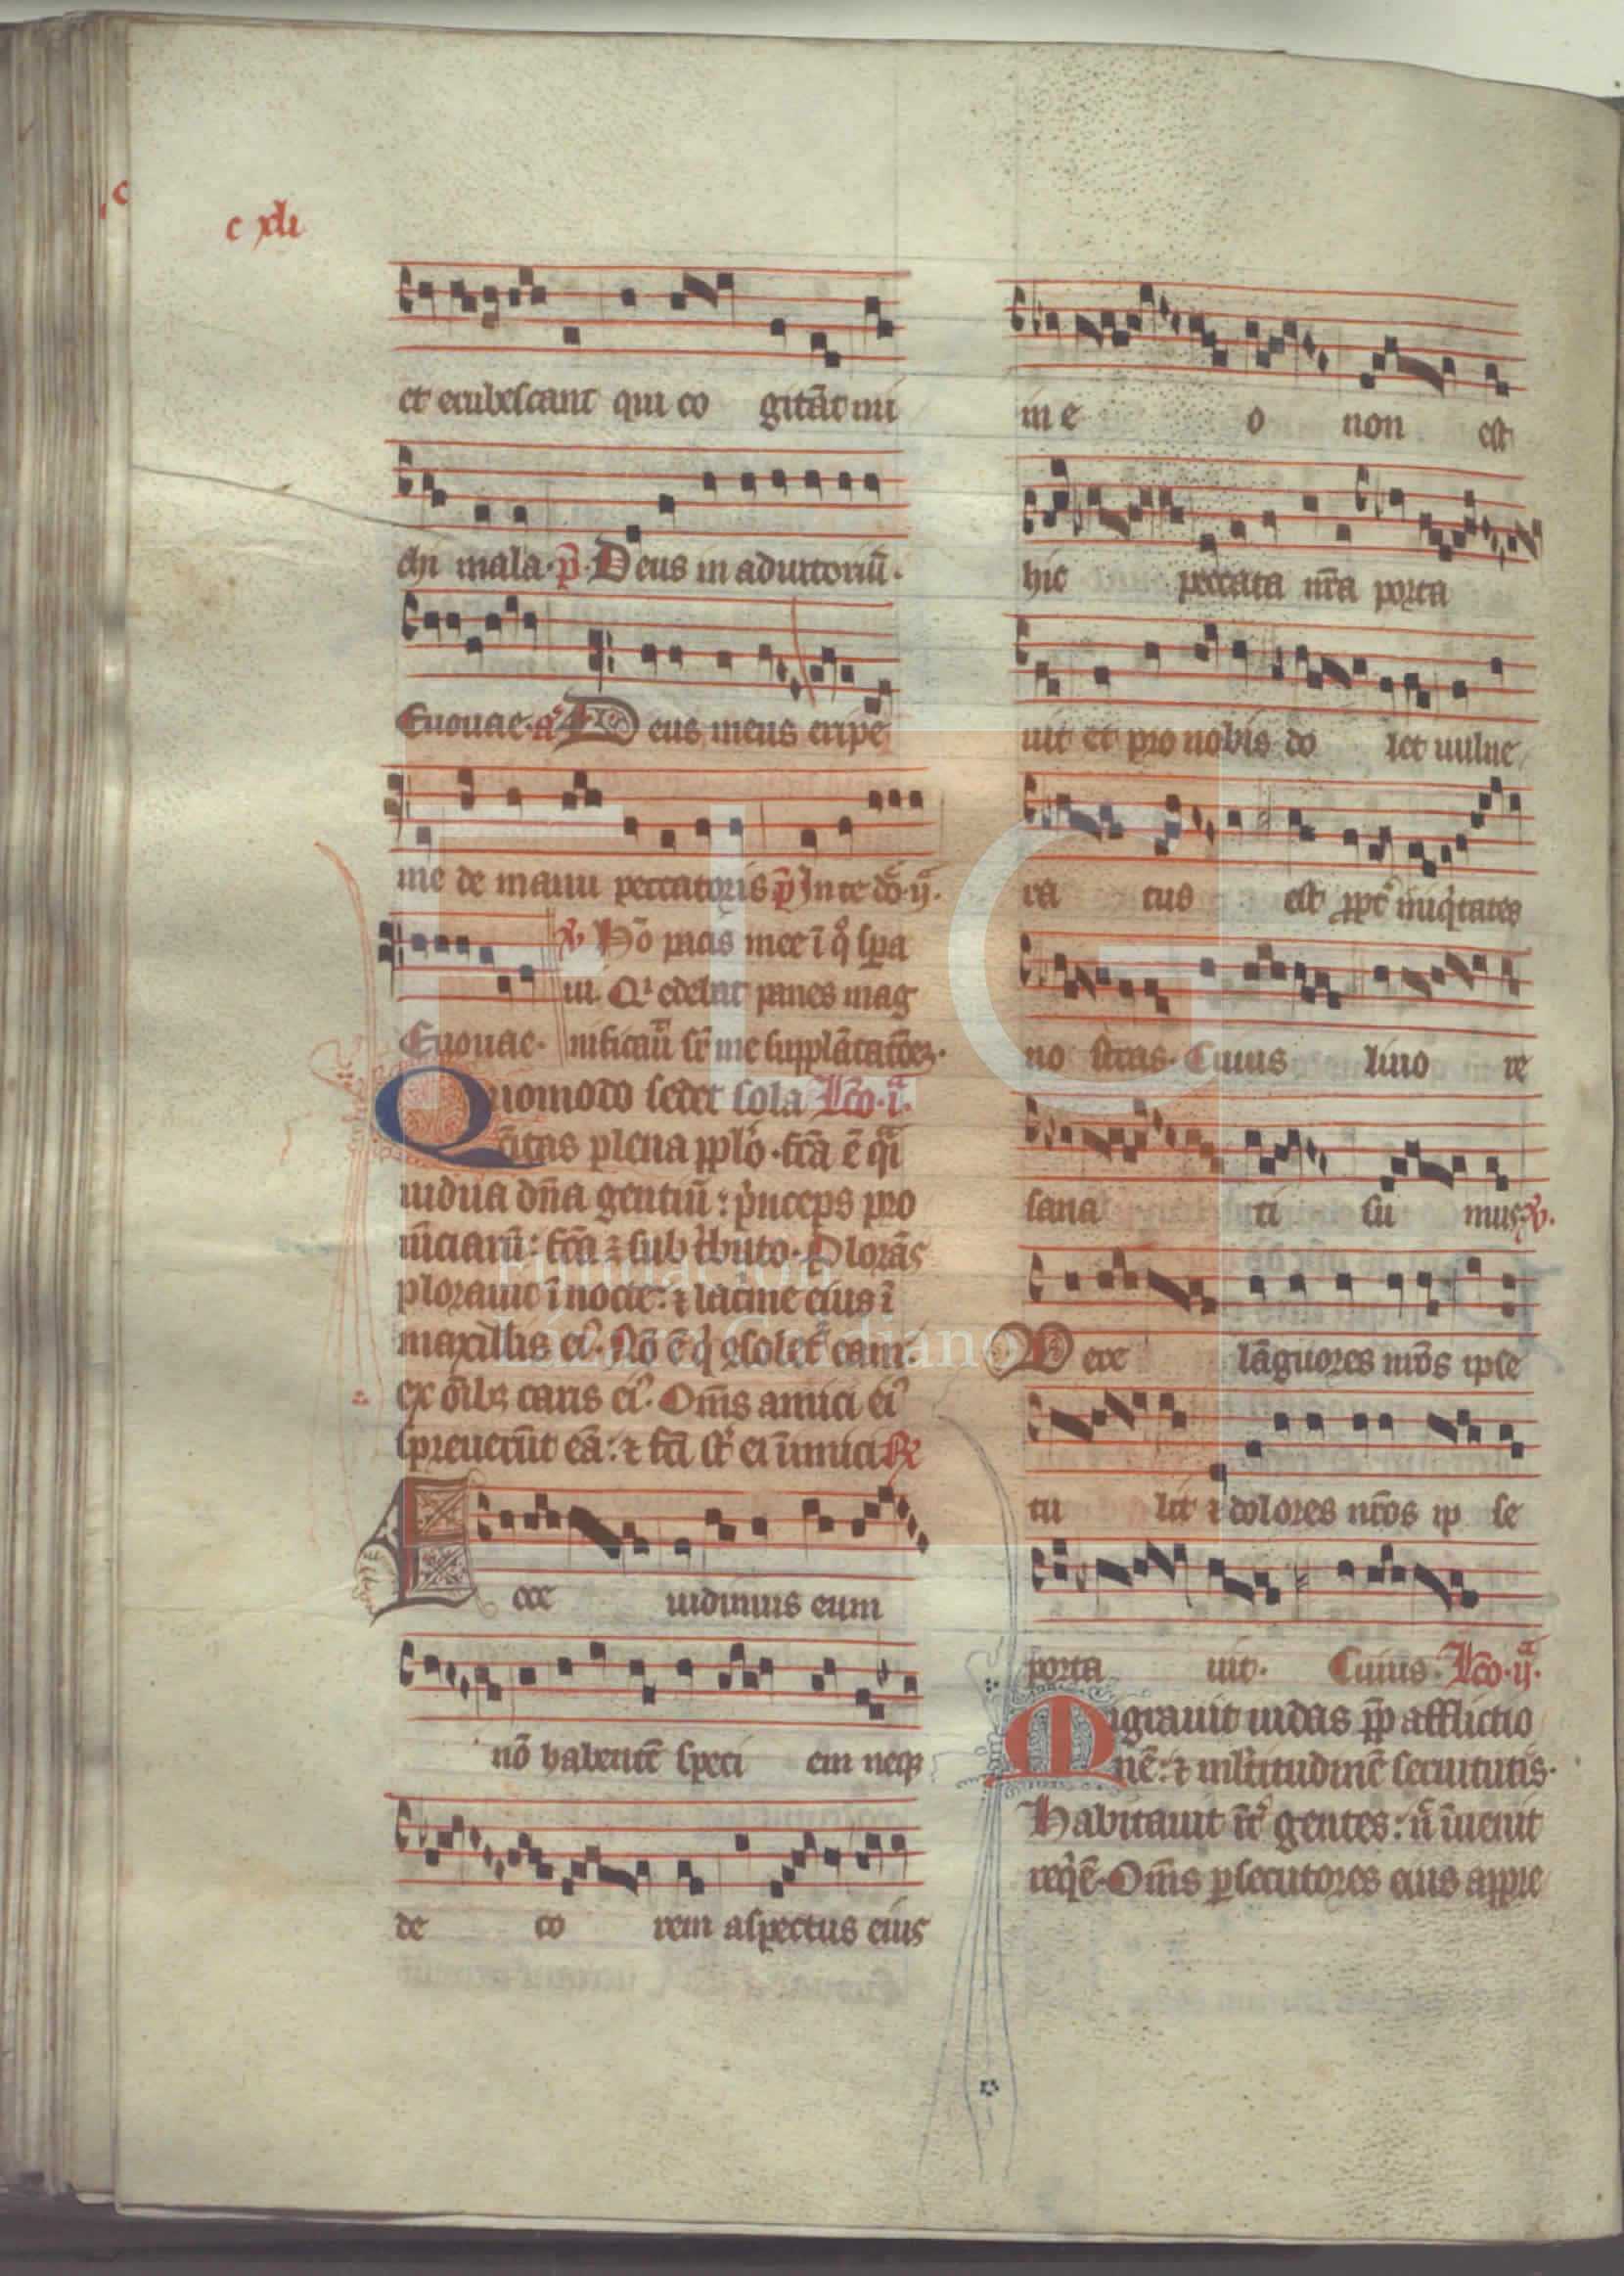 c xli
et erubescant qui co gitāt mi
chi mala. p̄. Deus in adiutoriū.
Euouae. a̅ Deus meus eripe
me de manu peccatoris p̄ In te dō. ij.
℣ Hō pacis mee ī q° spa
ui. Qi edebat panes mag
Euouae. nificauit sr̄ me supplātatōēz.
Quomodo sedet sola Lc̄o. i.
ciuitas plena pplo. fc̄a ē q̄i
uidua dn̄a gentiū: p̄nceps pro
uīciarū: fc̄a ē sub t̄buto. Plorās
plorauit ī nocte: ⁊ lacrime eius ī
maxillis ei. Nō ē q̇ ꝯsolet eam:
ex ōībꝫ caris ei. Om̄s amici ei
spreuerūt eā: ⁊ fc̄i st̄ ei inimici ℟
Ecce uidimus eum
nō habentē speci em neqꝫ
de co rem aspectus eius
in e o non est
hic peccata nr̄a porta
uit et pro nobis do let uulne
ra tus est ꝓpt̄ iniq̇tates
no stras. Cuius liuo re
sana ti su mus. ℣.
Uere lāguores nr̄os ipse
tu lit ⁊ dolores nr̄os ip se
porta uit. Cuius. Lc̄o. ij.
Migrauit iudas ꝓp afflictio
nē: ⁊ ml̄titudinē seruitutis.
Habitauit īt̄ gentes: n̄ īuenit
req̇ē. Om̄s ꝑsecutores eius appre
FLG
Fundación
Lázaro Galdiano